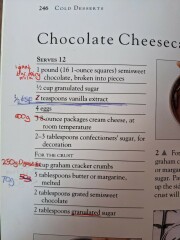 246 COLD DESSERTS
Chocolate Cheeseca
SERVES 12
1 pound (16 1-ounce squares) semisweet
chocolate, broken into pieces
½ cup granulated sugar
2 teaspoons vanilla extract
4 eggs
400g ounce packages cream cheese, at
room temperature
2–3 tablespoons confectioners' sugar, for
decoration
FOR THE CRUST
250g cup graham cracker crumbs
70g 5 tablespoons butter or margarine,
melted
2 tablespoons grated semisweet
chocolate
2 tablespoons granulated sugar
2 ▲ For
graham c
or marga
sugar. Pa
up the sid
crust will